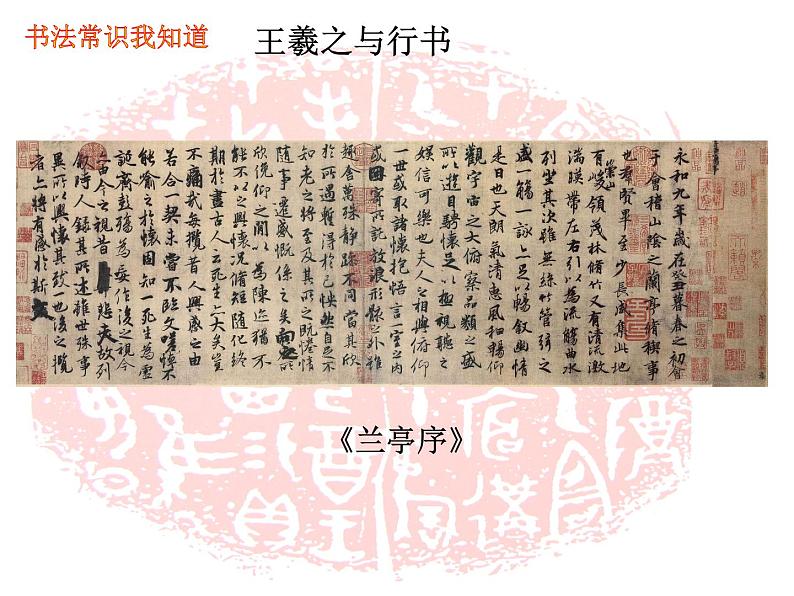 书法常识我知道
王羲之与行书
永和九年歲在癸丑暮春之初會
于會稽山陰之蘭亭脩稧事
也羣賢畢至少長咸集此地
有崇山峻領茂林脩竹又有清流激
湍暎帶左右引以為流觴曲水
列坐其次雖無絲竹管弦之
盛一觴一詠亦足以暢叙幽情
是日也天朗氣清惠風和暢仰
觀宇宙之大俯察品類之盛
所以遊目騁懷足以極視聽之
娛信可樂也夫人之相與俯仰
一世或取諸懷抱悟言一室之内
或因寄所託放浪形骸之外雖
趣舍萬殊静躁不同當其欣
於所遇蹔得於己怏然自足不
知老之將至及其所之既惓情
隨事遷感慨係之矣向之所
欣俛仰之閒以為陳迹猶不
能不以之興懷況脩短隨化終
期於盡古人云死生亦大矣豈
不痛哉每攬昔人興感之由
若合一契未嘗不臨文嗟悼不
能喻之於懷固知一死生為虛
誕齊彭殤為妄作後之視今
亦由今之視昔悲夫故列
叙時人錄其所述雖世殊事
異所以興懷其致一也後之攬
者亦將有感於斯文
《兰亭序》